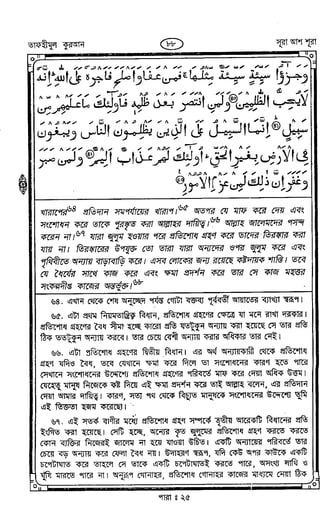 তাফহীমুল কুরআন
৮৮
সূরা আশ শূরা
وَجَزٰٓؤُا سَيِّئَةٍ سَيِّئَةٌ مِّثْلُهَا ۚ فَمَنْ عَفَا وَاَصْلَحَ فَاَجْرُهٗ عَلَى اللّٰهِ ۭ اِنَّهٗ
لَا يُحِبُّ الظّٰلِمِيْنَ ۝ وَلَمَنِ انْتَصَرَ بَعْدَ ظُلْمِهٖ فَاُولٰٓئِكَ مَا عَلَيْهِمْ مِّنْ
سَبِيْلٍ ۝ اِنَّمَا السَّبِيْلُ عَلَى الَّذِيْنَ يَظْلِمُوْنَ النَّاسَ وَيَبْغُوْنَ
فِى الْاَرْضِ بِغَيْرِ الْحَقِّ ۭ اُولٰٓئِكَ لَهُمْ عَذَابٌ اَلِيْمٌ ۝ وَلَمَنْ صَبَرَ
وَغَفَرَ اِنَّ ذٰلِكَ لَمِنْ عَزْمِ الْاُمُوْرِ ۝
খারাপের৬৪ প্রতিদান সমপর্যায়ের খারাপ।৬৫ অতপর যে মাফ করে দেয় এবং
সংশোধন করে তাকে পুরস্কৃত করা আল্লাহর দায়িত্ব।৬৬ আল্লাহ জালেমদের পসন্দ
করেন না।৬৭ যারা জুলুম হওয়ার পরে প্রতিশোধ গ্রহণ করে তাদের তিরস্কার করা
যায় না। তিরস্কারের উপযুক্ত তো তারা যারা অন্যদের ওপর জুলুম করে এবং
পৃথিবীতে অন্যায় বাড়াবাড়ি করে। এসব লোকের জন্য রয়েছে কষ্টদায়ক শাস্তি। তবে
যে ধৈর্যের সাথে কাজ করে এবং ক্ষমা প্রদর্শন করে তার সে কাজ মহত্তর
সংকল্পদীপ্ত কাজের অন্তর্ভুক্ত।৬৮
৬৪. এখান থেকে শেষ অনুচ্ছেদ পর্যন্ত গোটা বক্তব্য পূর্ববর্তী আয়াতের ব্যাখ্যা স্বরূপ।
৬৫. এটা প্রথম নিয়মতান্ত্রিক বিধান, প্রতিশোধ গ্রহণের ক্ষেত্রে যা মনে রাখা দরকার।
প্রতিশোধ গ্রহণের বৈধ সীমা হচ্ছে কারো প্রতি যতটুকু অন্যায় করা হয়েছে সে তার প্রতি
ঠিক ততটুকু অন্যায় করবে। তার চেয়ে বেশী অন্যায় করার অধিকার তার নেই।
৬৬. এটা প্রতিশোধ গ্রহণের দ্বিতীয় বিধান। এর অর্থ অন্যায়কারী থেকে প্রতিশোধ
গ্রহণ যদিও বৈধ, তবে যেখানে ক্ষমা করে দিলে তা সংশোধনের কারণ হতে পারে
সেখানে সংশোধনের উদ্দেশ্যে প্রতিশোধ গ্রহণের পরিবর্তে মাফ করে দেয়া অধিক উত্তম।
যেহেতু মানুষ নিজেকে কষ্ট দিয়ে এই ক্ষমা প্রদর্শন করে তাই আল্লাহ বলেন, এর প্রতিদান
দেয়া আমার দায়িত্ব। কারণ, সত্য পথ থেকে বিচ্যুত মানুষকে সংশোধনের উদ্দেশ্যে তুমি
এই তিক্ততা হজম করেছো।
৬৭. এই সতর্ক বাণীর মধ্যে প্রতিশোধ গ্রহণ সম্পর্কে তৃতীয় আরেকটি বিধানের প্রতি
ইংগিত করা হয়েছে। সেটি হচ্ছে, অন্যের কৃত জুলুমের প্রতিশোধ গ্রহণ করতে করতে
কোন ব্যক্তির নিজেরই জালেম না হয়ে যাওয়া উচিত। একটি অন্যায়ের পরিবর্তে তার
চেয়ে বড় অন্যায় করে ফেলা বৈধ নয়। উদাহরণ স্বরূপ, যদি কেউ অপর কাউকে একটি
চপেটাঘাত করে তাহলে সে তাকে একটি চপেটাঘাতই করতে পারে, অসংখ্য লাথি ও
ঘুষি মারতে পারে না। অনুরূপ গোনাহর, প্রতিশোধ গোনাহর কাজের মাধ্যমে নেয়া ঠিক
পারা ঃ ২৫